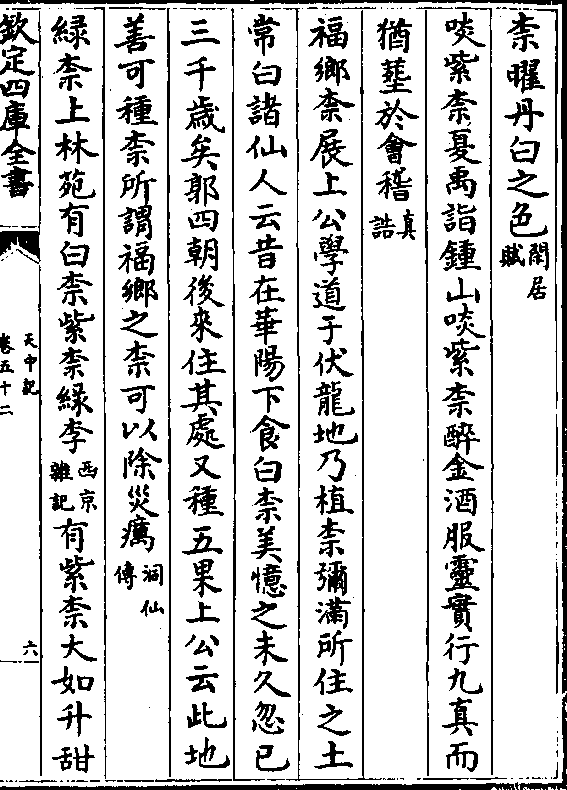 柰曜丹白之色閑居賦
啖紫柰夏禹詣鍾山啖紫柰醉金酒服靈寶行九真而
猶塟於會稽真誥
福鄉柰展上公學道于伏龍地乃植柰彌滿所住之土
常白諸仙人云昔在華陽下食白柰美憶之未久忽已
三千歲矣郭四朝後來住其處又種五果上公云此地
善可種柰所謂福鄉之柰可以除災癘洞仙傳
緑柰上林苑有白柰紫柰緑李西京雜記有紫柰大如升甜
欽定四庫全書
天中記
卷五十二
六